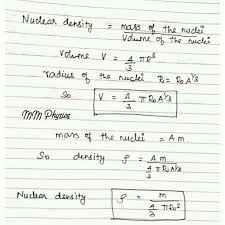 Nuclear density = mass of the nuclei
Volume of the nuclei
Volume V = 4/3 πR³
radius of the nuclei R = R₀A^1/3
So V = 4/3 πR₀A^1/3
MM Physics
mass of the nuclei = Am
So density ρ = Am / 4/3 πR₀A^1/3
Nuclear density ρ = m / 4/3 πR₀²